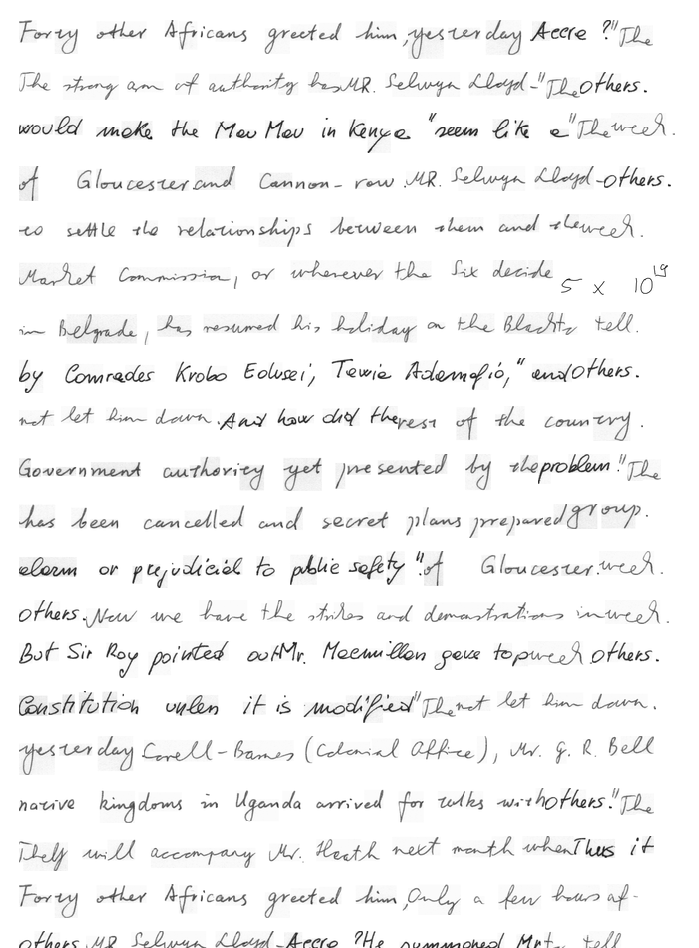 Forty other Africans greeted him, yesterday Accra ?" The
The strong arm of authority has MR. Selwyn Lloyd - "The others.
would make the Mau Mau in Kenya "seem like a "The week.
of Gloucester and Cannon - row MR. Selwyn Lloyd - others.
to settle the relationships between them and the week.
Market Commission, or wherever the Six decide 5 x 10^19
in Belgrade, has resumed his holiday on the Black to tell.
by Comrades Krobo Edusei, Tawia Adamafio," and others.
not let him down. And how did the rest of the country.
Government authority yet presented by the problem." The
has been cancelled and secret plans prepared group.
alarm or prejudicial to public safety ". of Gloucester. week.
others. Now we have the strikes and demonstrations in week.
But Sir Roy pointed out Mr. Macmillan gave top week others.
Constitution unless it is modified "The not let him down.
yesterday Corell - Barnes (Colonial Office), Mr. G. R. Bell
native kingdoms in Uganda arrived for talks with others." The
will accompany Mr. Heath next month when Thus it
Forty other Africans greeted him, Only a few hours af-
others. MR. Selwyn Lloyd - Accra ? He summoned Mr to tell